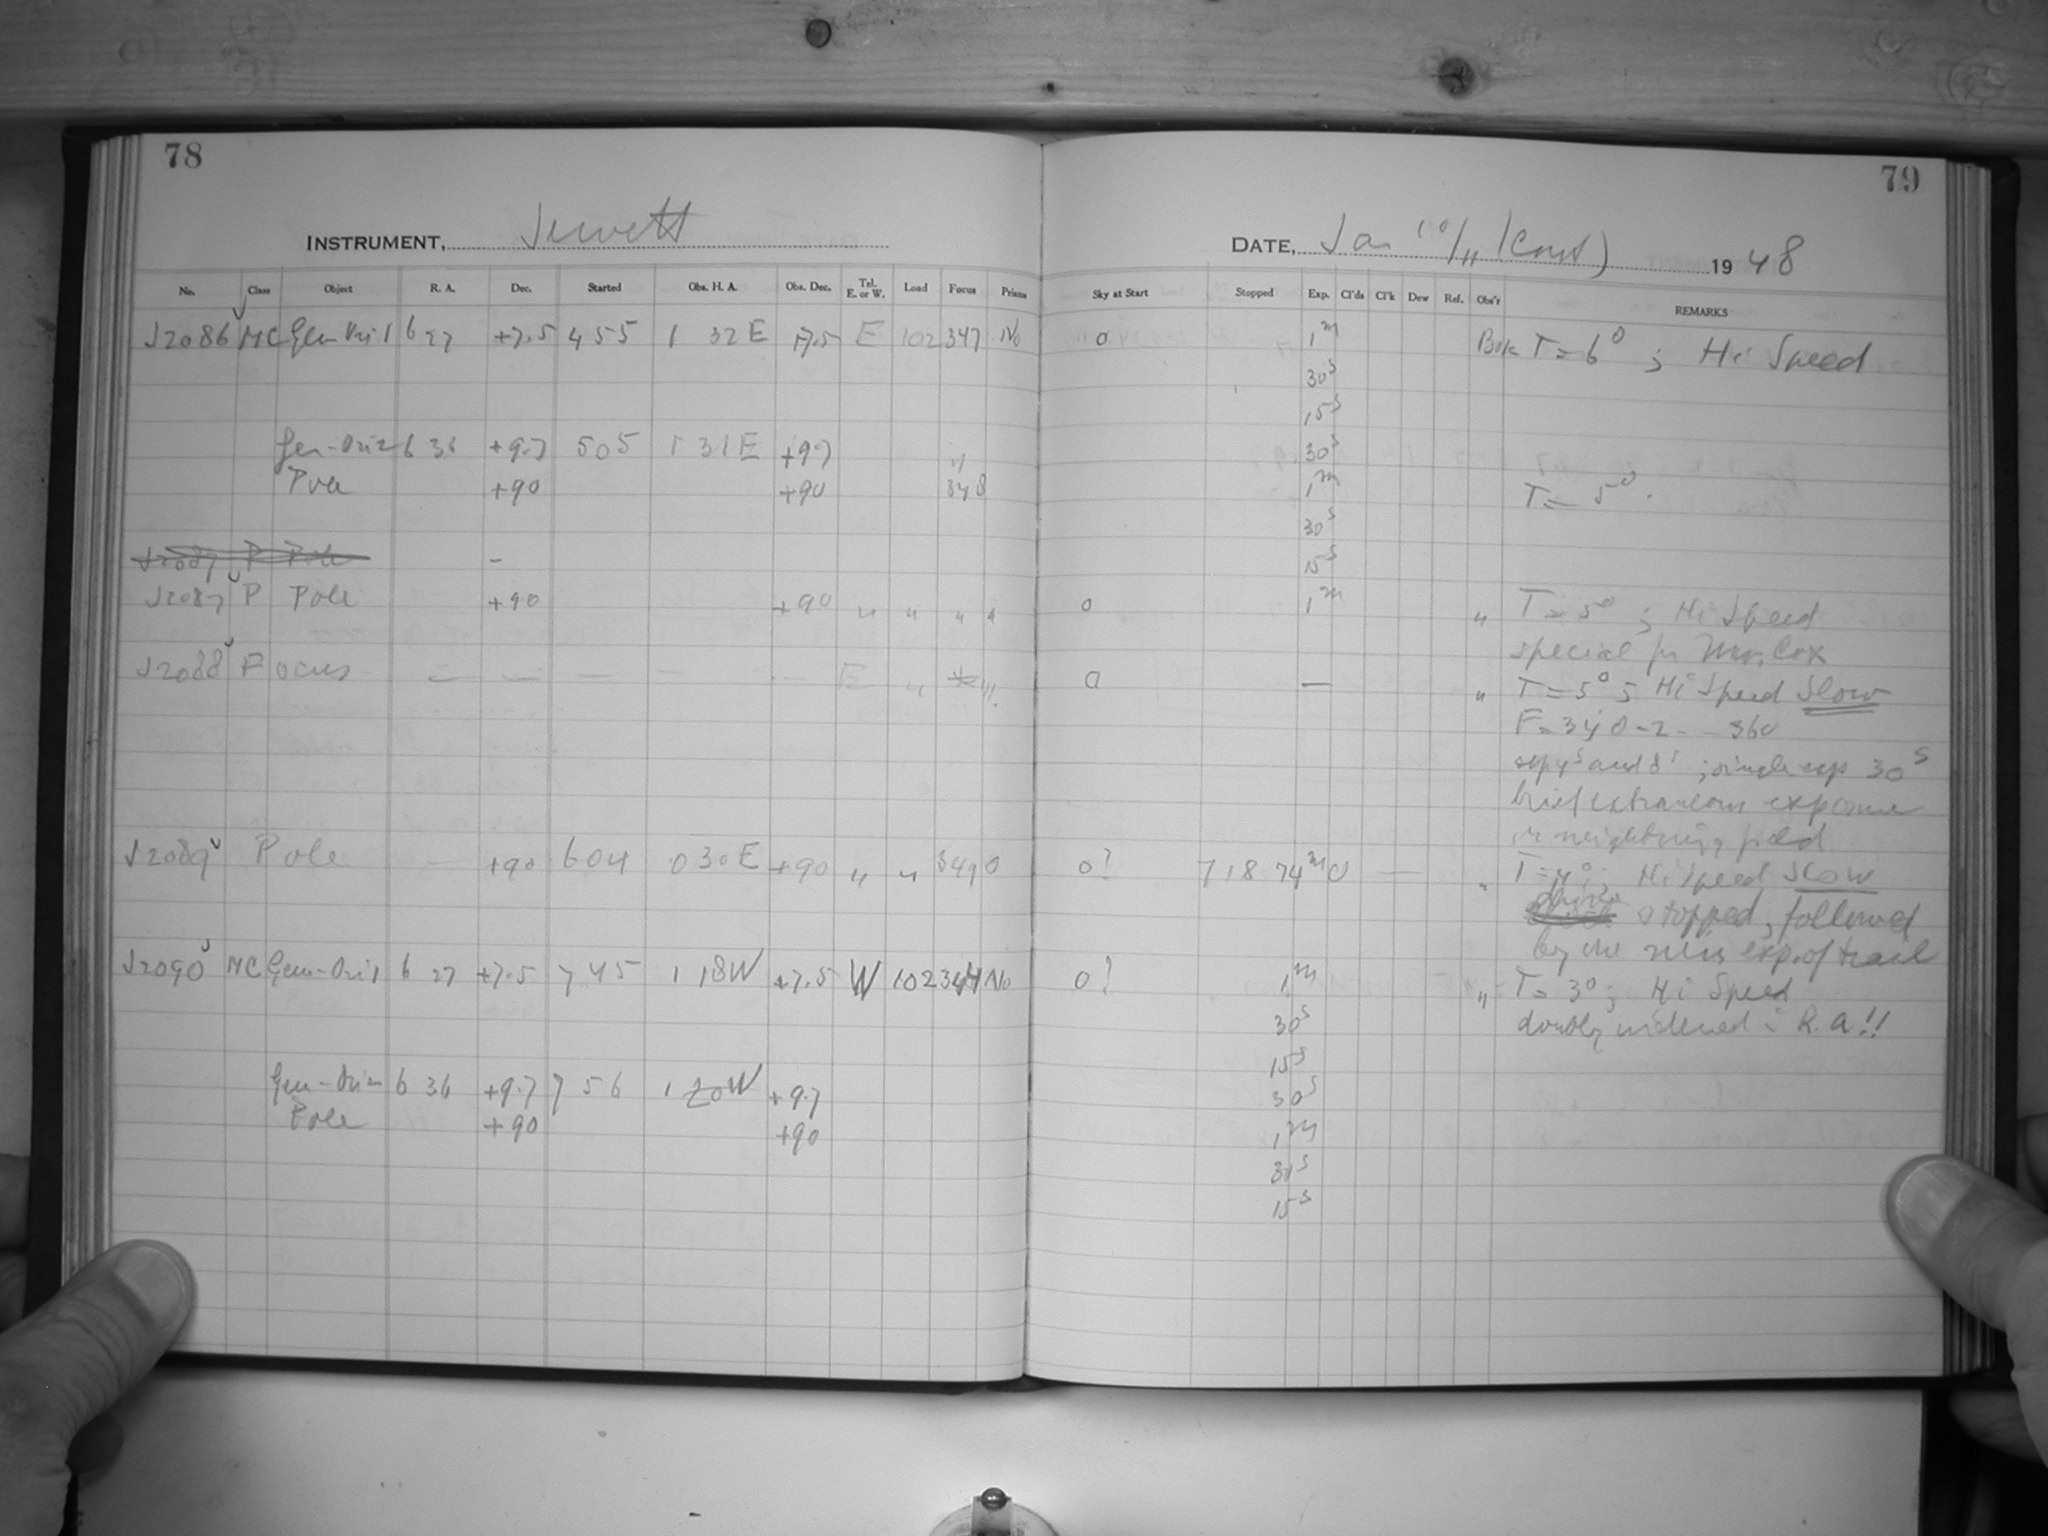 78
79
INSTRUMENT, Jewett
DATE, Jan 10/11 (Cont) 1948
No. Class Object R. A. Dec. Started Obs. H. A. Obs. Dec. Tel. E. or W. Load Focus Prisms Sky at Start Stopped Exp. Cl'ds Cl'k Dew Ref. Obs'r REMARKS
J2086 MC Gem-Ori 1 6 27 +7.5 4 55 1 32 E +7.5 E 102 347 No 0 1m T=6° ; Hi Speed
30s
15s
Gem-Ori 2 6 36 +9.7 5 05 1 31 E +9.7 " 30s
Pole +90 +90 348 1m T= 5°
30s
J2087 P Pole - 15s
J2087 P Pole +90 +90 " " " " 0 1m " T=5° ; Hi Speed
special for Mrs. Cox
J2088 Focus — — — — E " " 0 — " T=5° ; Hi Speed Slow
F=340-2--360
sep 4s and 8s ; single exp 30s
brief extraneous exposure
in neighboring field
J2089 Pole — +90 6 04 0 30 E +90 " " 349 0 0? 7 18 74m 0 — " T=4° ; Hi Speed Slow
drive stopped, followed
by one min exp. of trail
J2090 MC Gem-Ori 1 6 27 +7.5 7 45 1 18W +7.5 W 102 344 No 0? 1m " T= 3° ; Hi Speed
doubly widened in R.A!!
30s
15s
Gem-Ori 2 6 36 +9.7 7 56 1 20W +9.7 30s
Pole +90 +90 1m
30s
15s